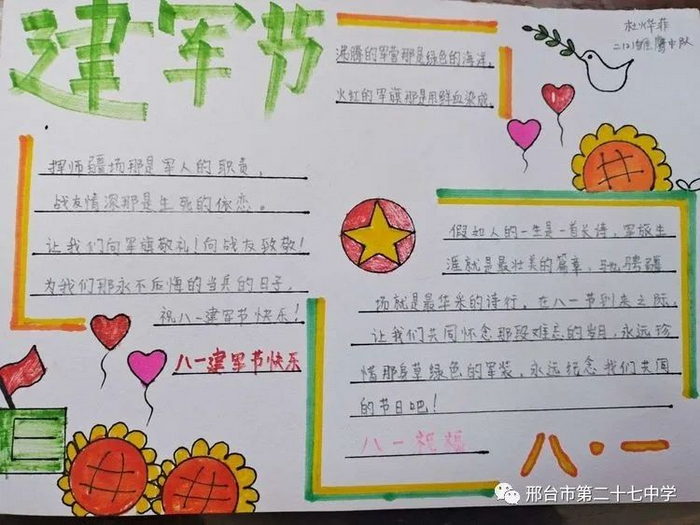 建军节
沸腾的军营那是绿色的海洋,
火红的军旗那是用鲜血染成。
杜烨菲
中队
挥师疆场那是军人的职责,
战友情深那是生死的依恋。
让我们向军旗敬礼!向战友致敬!
为我们那永不后悔的当兵的日子,
祝八一建军节快乐!
八一建军节快乐
假如人的一生是一首长诗,军旅生
涯就是最壮美的篇章,驰骋疆
场就是最华米的诗行。在八一节到来之际,
让我们共同怀念那段难忘的岁月,永远珍
惜那身草绿色的军装,永远纪念我们共同
的节日吧!
八一祝福
八·一
邢台市第二十七中学